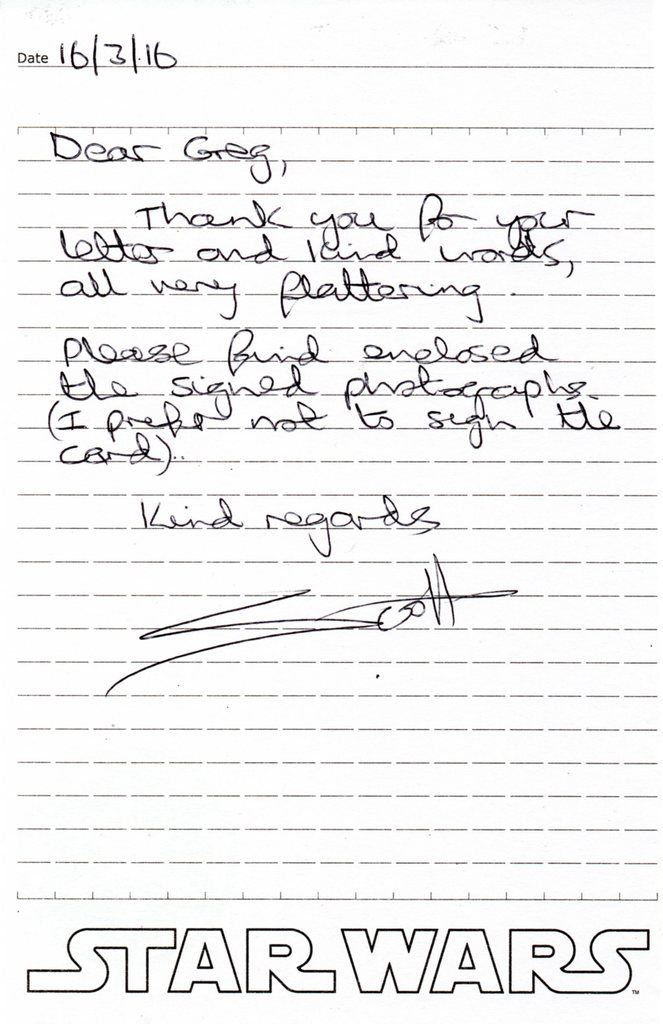 Date 16/3/16
Dear Greg,
Thank you for your
letter and kind words,
all very flattering.
Please find enclosed
the signed photographs.
(I prefer not to sign the
card).
Kind regards
Scott
STAR WARS
TM